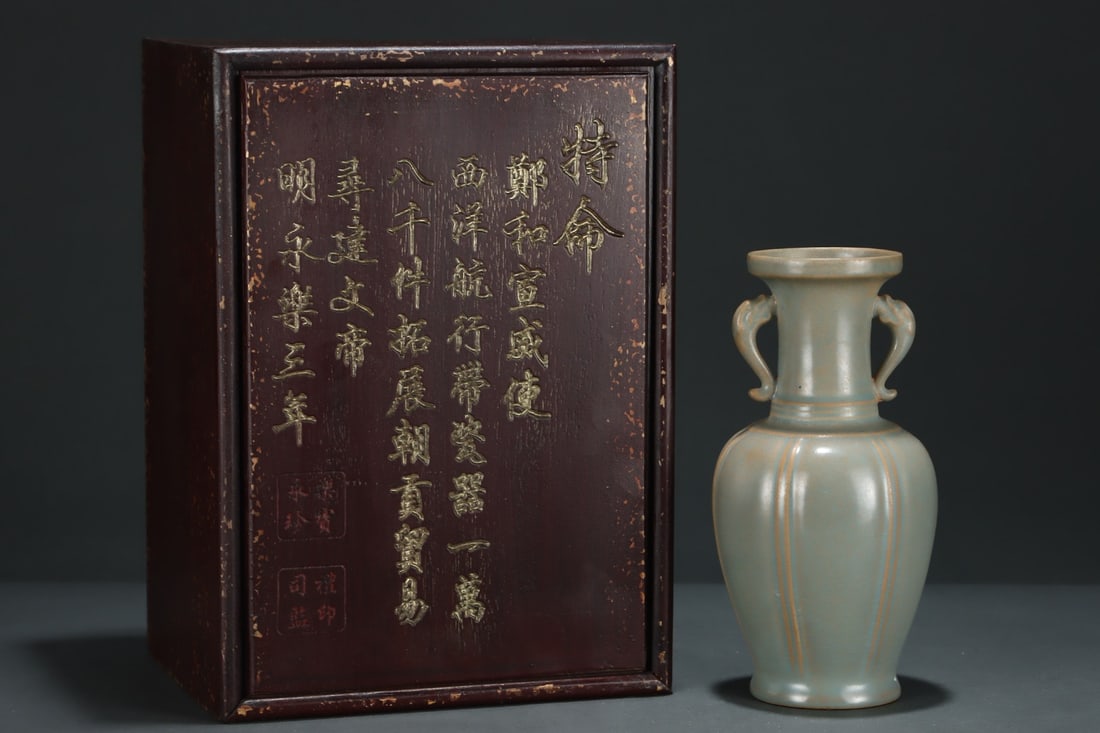 特命
鄭和宣威使
西洋航行帶瓷器一萬
八千件拓展朝貢貿易
尋建文帝
明永樂三年
樂賞
永珍
禮印
司監